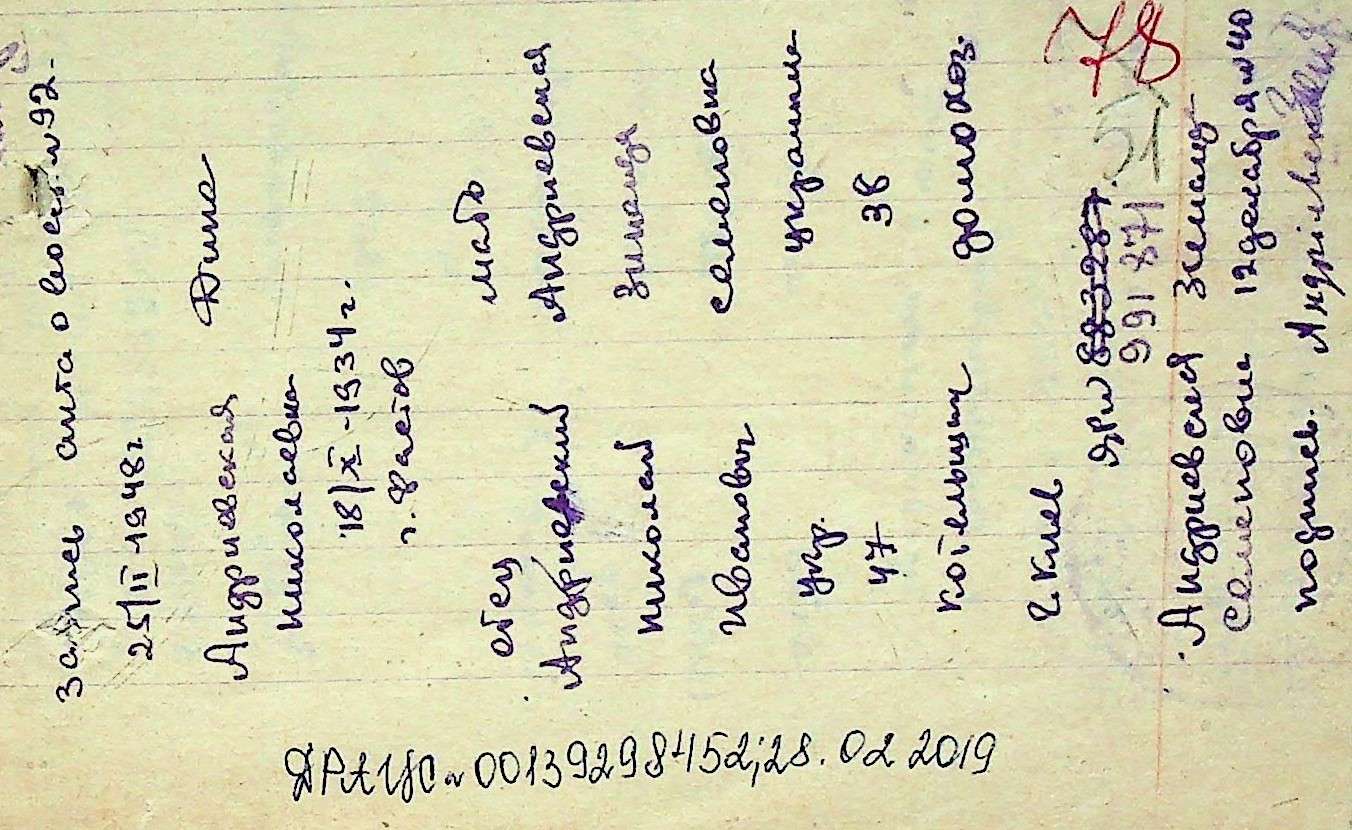 Запись акта о восст. №92.
25/II-1948 г.
Андриевская Дина
Николаевна
18/XI-1934 г.
г. Фастов
отец мать
Андриевский Андриевская
Николай Зинаида
Иванович Семеновна
укр. украинка
47 38
котельщик домохоз.
г. Киев
78
51
ЯР№ 883287.
991 871
Андриевская Зинаида
Семеновна 12 декабря № 40
подпись. Андріевська
ДРАЦС № 00139298452; 28.02 2019